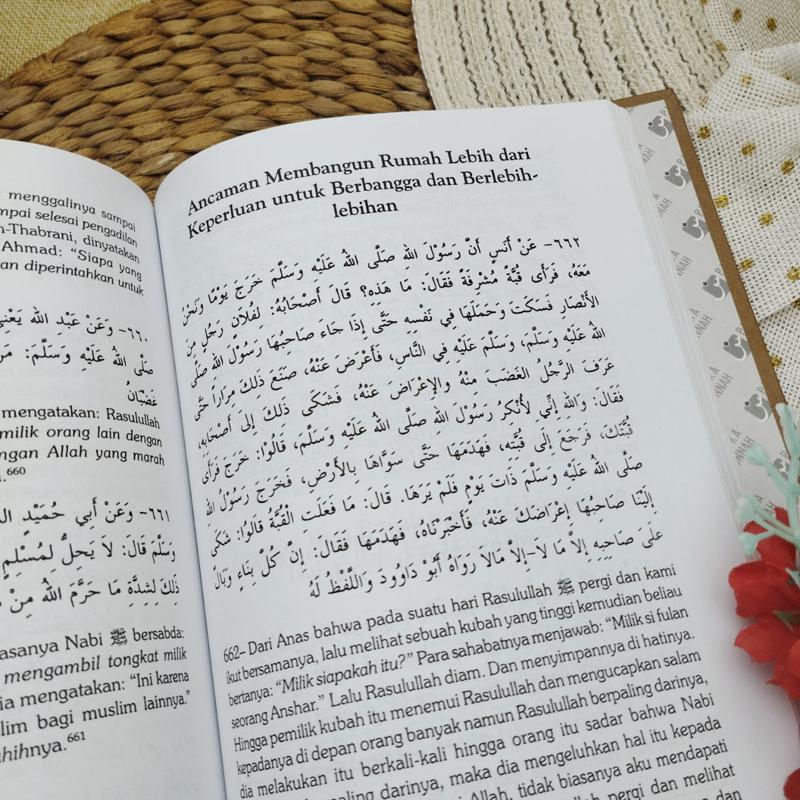 menggalinya sampai
mpai selesai pengadilan
h-Thabrani, dinyatakan
Ahmad: “Siapa yang
an diperintahkan untuk
٦٦٠- وَعَنْ عَبْدِ اللهِ يَعْنِي
صَلَّى اللهُ عَلَيْهِ وَسَلَّمَ: مَنْ
غَضْبَانُ
mengatakan: Rasulullah
milik orang lain dengan
ngan Allah yang marah
.⁶⁶⁰
٦٦١- وَعَنْ أَبِي حُمَيْدٍ
وَسَلَّمَ قَالَ: لاَ يَحِلُّ لِمُسْلِمٍ
ذَلِكَ لِشِدَّةِ مَا حَرَّمَ اللهُ مِنْ
asanya Nabi ﷺ bersabda:
mengambil tongkat milik
ia mengatakan: “Ini karena
lim bagi muslim lainnya.”
hihnya.⁶⁶¹
Ancaman Membangun Rumah Lebih dari
Keperluan untuk Berbangga dan Berlebih-
lebihan
٦٦٢- عَنْ أَنَسٍ أَنَّ رَسُوْلَ اللهِ صَلَّى اللهُ عَلَيْهِ وَسَلَّمَ خَرَجَ يَوْمًا وَنَحْنُ
مَعَهُ، فَرَأَى قُبَّةً مُشْرِفَةً فَقَالَ: مَا هَذِهِ؟ قَالَ أَصْحَابُهُ: لِفُلاَنٍ رَجُلٍ مِنَ
الأَنْصَارِ فَسَكَتَ وَحَمَلَهَا فِي نَفْسِهِ حَتَّى إِذَا جَاءَ صَاحِبُهَا رَسُوْلَ اللهِ صَلَّى
اللهُ عَلَيْهِ وَسَلَّمَ، وَسَلَّمَ عَلَيْهِ فِي النَّاسِ، فَأَعْرَضَ عَنْهُ، صَنَعَ ذَلِكَ مِرَارًا حَتَّى
عَرَفَ الرَّجُلُ الغَضَبَ مِنْهُ وَالإِعْرَاضَ عَنْهُ، فَشَكَى ذَلِكَ إِلَى أَصْحَابِهِ،
فَقَالَ: وَاللهِ إِنِّي لأُنْكِرُ رَسُوْلَ اللهِ صَلَّى اللهُ عَلَيْهِ وَسَلَّمَ، قَالُوْا: خَرَجَ فَرَأَى
قُبَّتَكَ، فَرَجَعَ إِلَى قُبَّتِهِ، فَهَدَمَهَا حَتَّى سَوَّاهَا بِالأَرْضِ، فَخَرَجَ رَسُوْلُ اللهِ
صَلَّى اللهُ عَلَيْهِ وَسَلَّمَ ذَاتَ يَوْمٍ فَلَمْ يَرَهَا. قَالَ: مَا فَعَلَتِ الْقُبَّةُ قَالُوْا: شَكَى
إِلَيْنَا صَاحِبُهَا إِعْرَاضَكَ عَنْهُ، فَأَخْبَرْنَاهُ، فَهَدَمَهَا فَقَالَ: إِنَّ كُلَّ بِنَاءٍ وَبَالٌ
عَلَى صَاحِبِهِ إِلاَّ مَا لاَ-إِلاَّ مَالاَ رَوَاهُ أَبُوْ دَاوُوْدَ وَاللَّفْظُ لَهُ
662- Dari Anas bahwa pada suatu hari Rasulullah ﷺ pergi dan kami
ikut bersamanya, lalu melihat sebuah kubah yang tinggi kemudian beliau
bertanya: “Milik siapakah itu?” Para sahabatnya menjawab: “Milik si fulan
seorang Anshar.” Lalu Rasulullah diam. Dan menyimpannya di hatinya.
Hingga pemilik kubah itu menemui Rasulullah dan mengucapkan salam
kepadanya di depan orang banyak namun Rasulullah berpaling darinya,
dia melakukan itu berkali-kali hingga orang itu sadar bahwa Nabi
paling darinya, maka dia mengeluhkan hal itu kepada
Allah, tidak biasanya aku mendapati
pergi dan melihat
dan